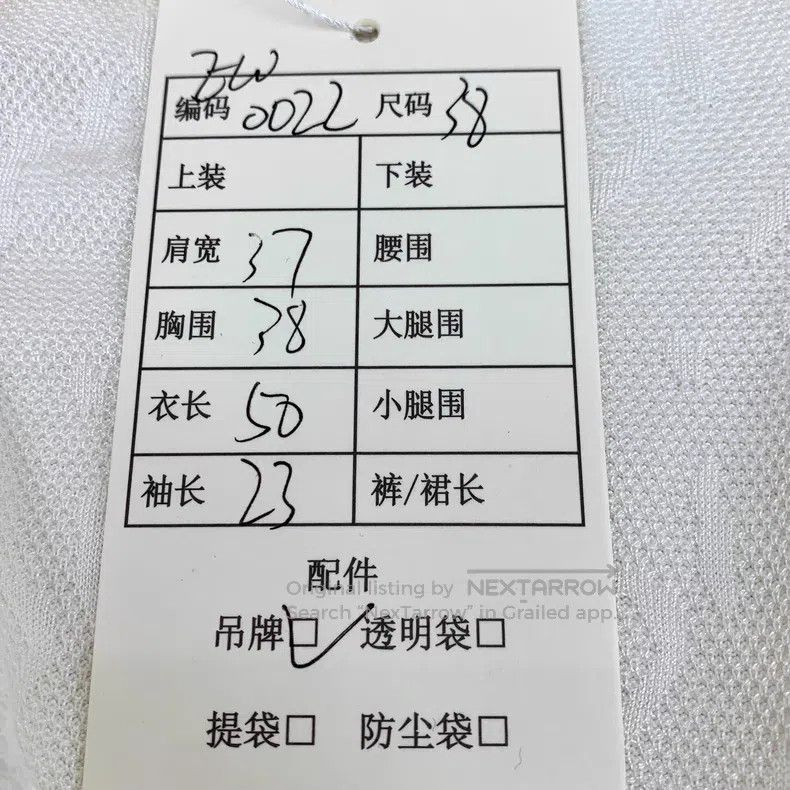 BW
编码 0022 尺码 38
上装 下装
肩宽 37 腰围
胸围 38 大腿围
衣长 50 小腿围
袖长 23 裤/裙长
配件
Original listing by NEXTARROW
Search "NexTarrow" in Grailed app.
吊牌☑ 透明袋□
提袋□ 防尘袋□